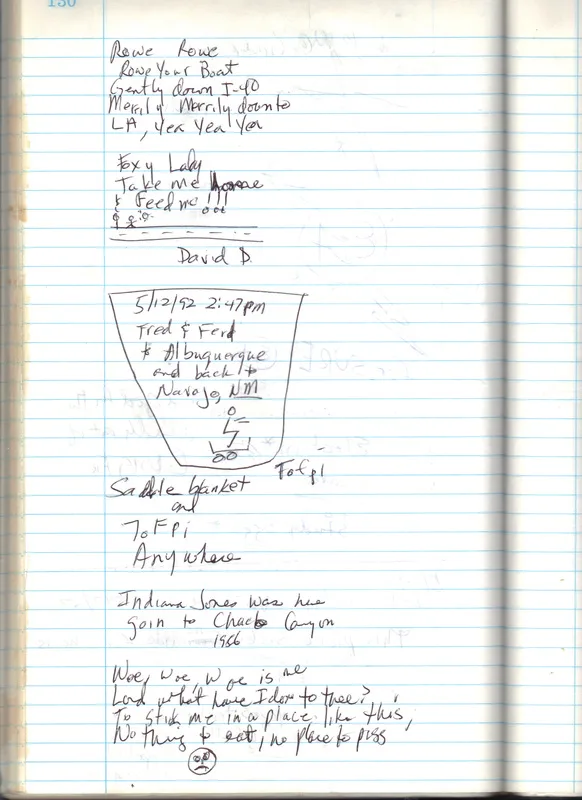 130
Rowe Rowe
Rowe Your Boat
Gently down I-40
Merrily Merrily down to
LA, Yea Yea Yea
Foxy Lady
Take me home
& Feed me !!!
David D.
5/12/92 2:47pm
Fred & Ferd
to Albuquerque
and back to
Navajo, NM
Tofpi
Saddle blanket
and
ToFPi
Anywhere
Indiana Jones was here
goin to Chaco Canyon
1956
Woe, Woe, Woe is me
Lord what have I don to thee?
To stick me in a place like this,
Nothing to eat, no place to piss